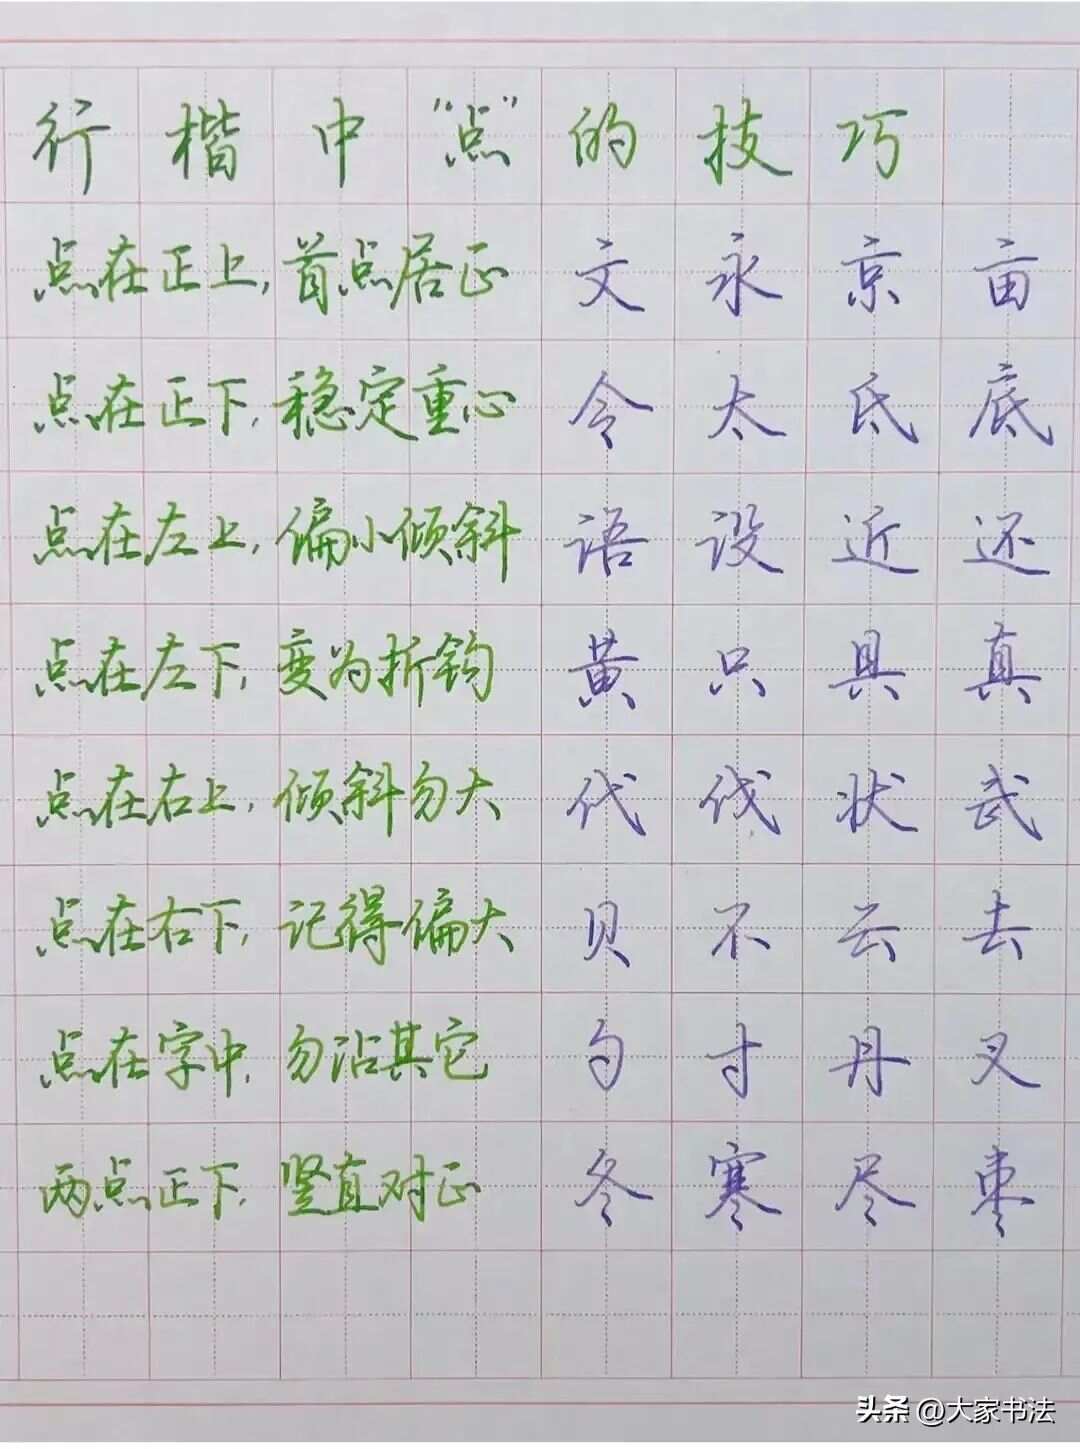 行楷中“点”的技巧
点在正上,首点居正 文永京亩
点在正下,稳定重心 令太氐底
点在左上,偏小倾斜 语设近还
点在左下,变为折钩 黄只具真
点在右上,倾斜勿大 代伐状武
点在右下,记得偏大 贝不云去
点在字中,勿沾其它 勺寸丹叉
两点正下,竖直对正 冬寒尽枣
头条 @大家书法